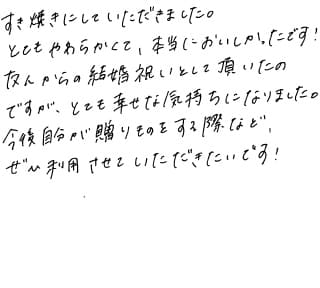 すき焼きにしていただきました。
とてもやわらかくて、本当においしかったです！
友人からの結婚祝いとして頂いたの
ですが、とても幸せな気持ちになりました。
今後自分が贈りものをする際など、
ぜひ利用させていただきたいです！